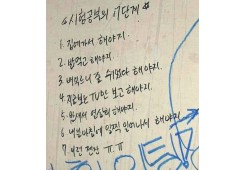 "시험공부의 7단계"
1. 집에가서 해야지.
2. 밥먹고 해야지.
3. 배부르니 좀 쉬었다 해야지.
4. 지금보는 TV만 보고 해야지.
5. 밤새서 열심히 해야지.
6. 내일아침에 일찍 일어나서 해야지.
7. ㅠ.ㅠ